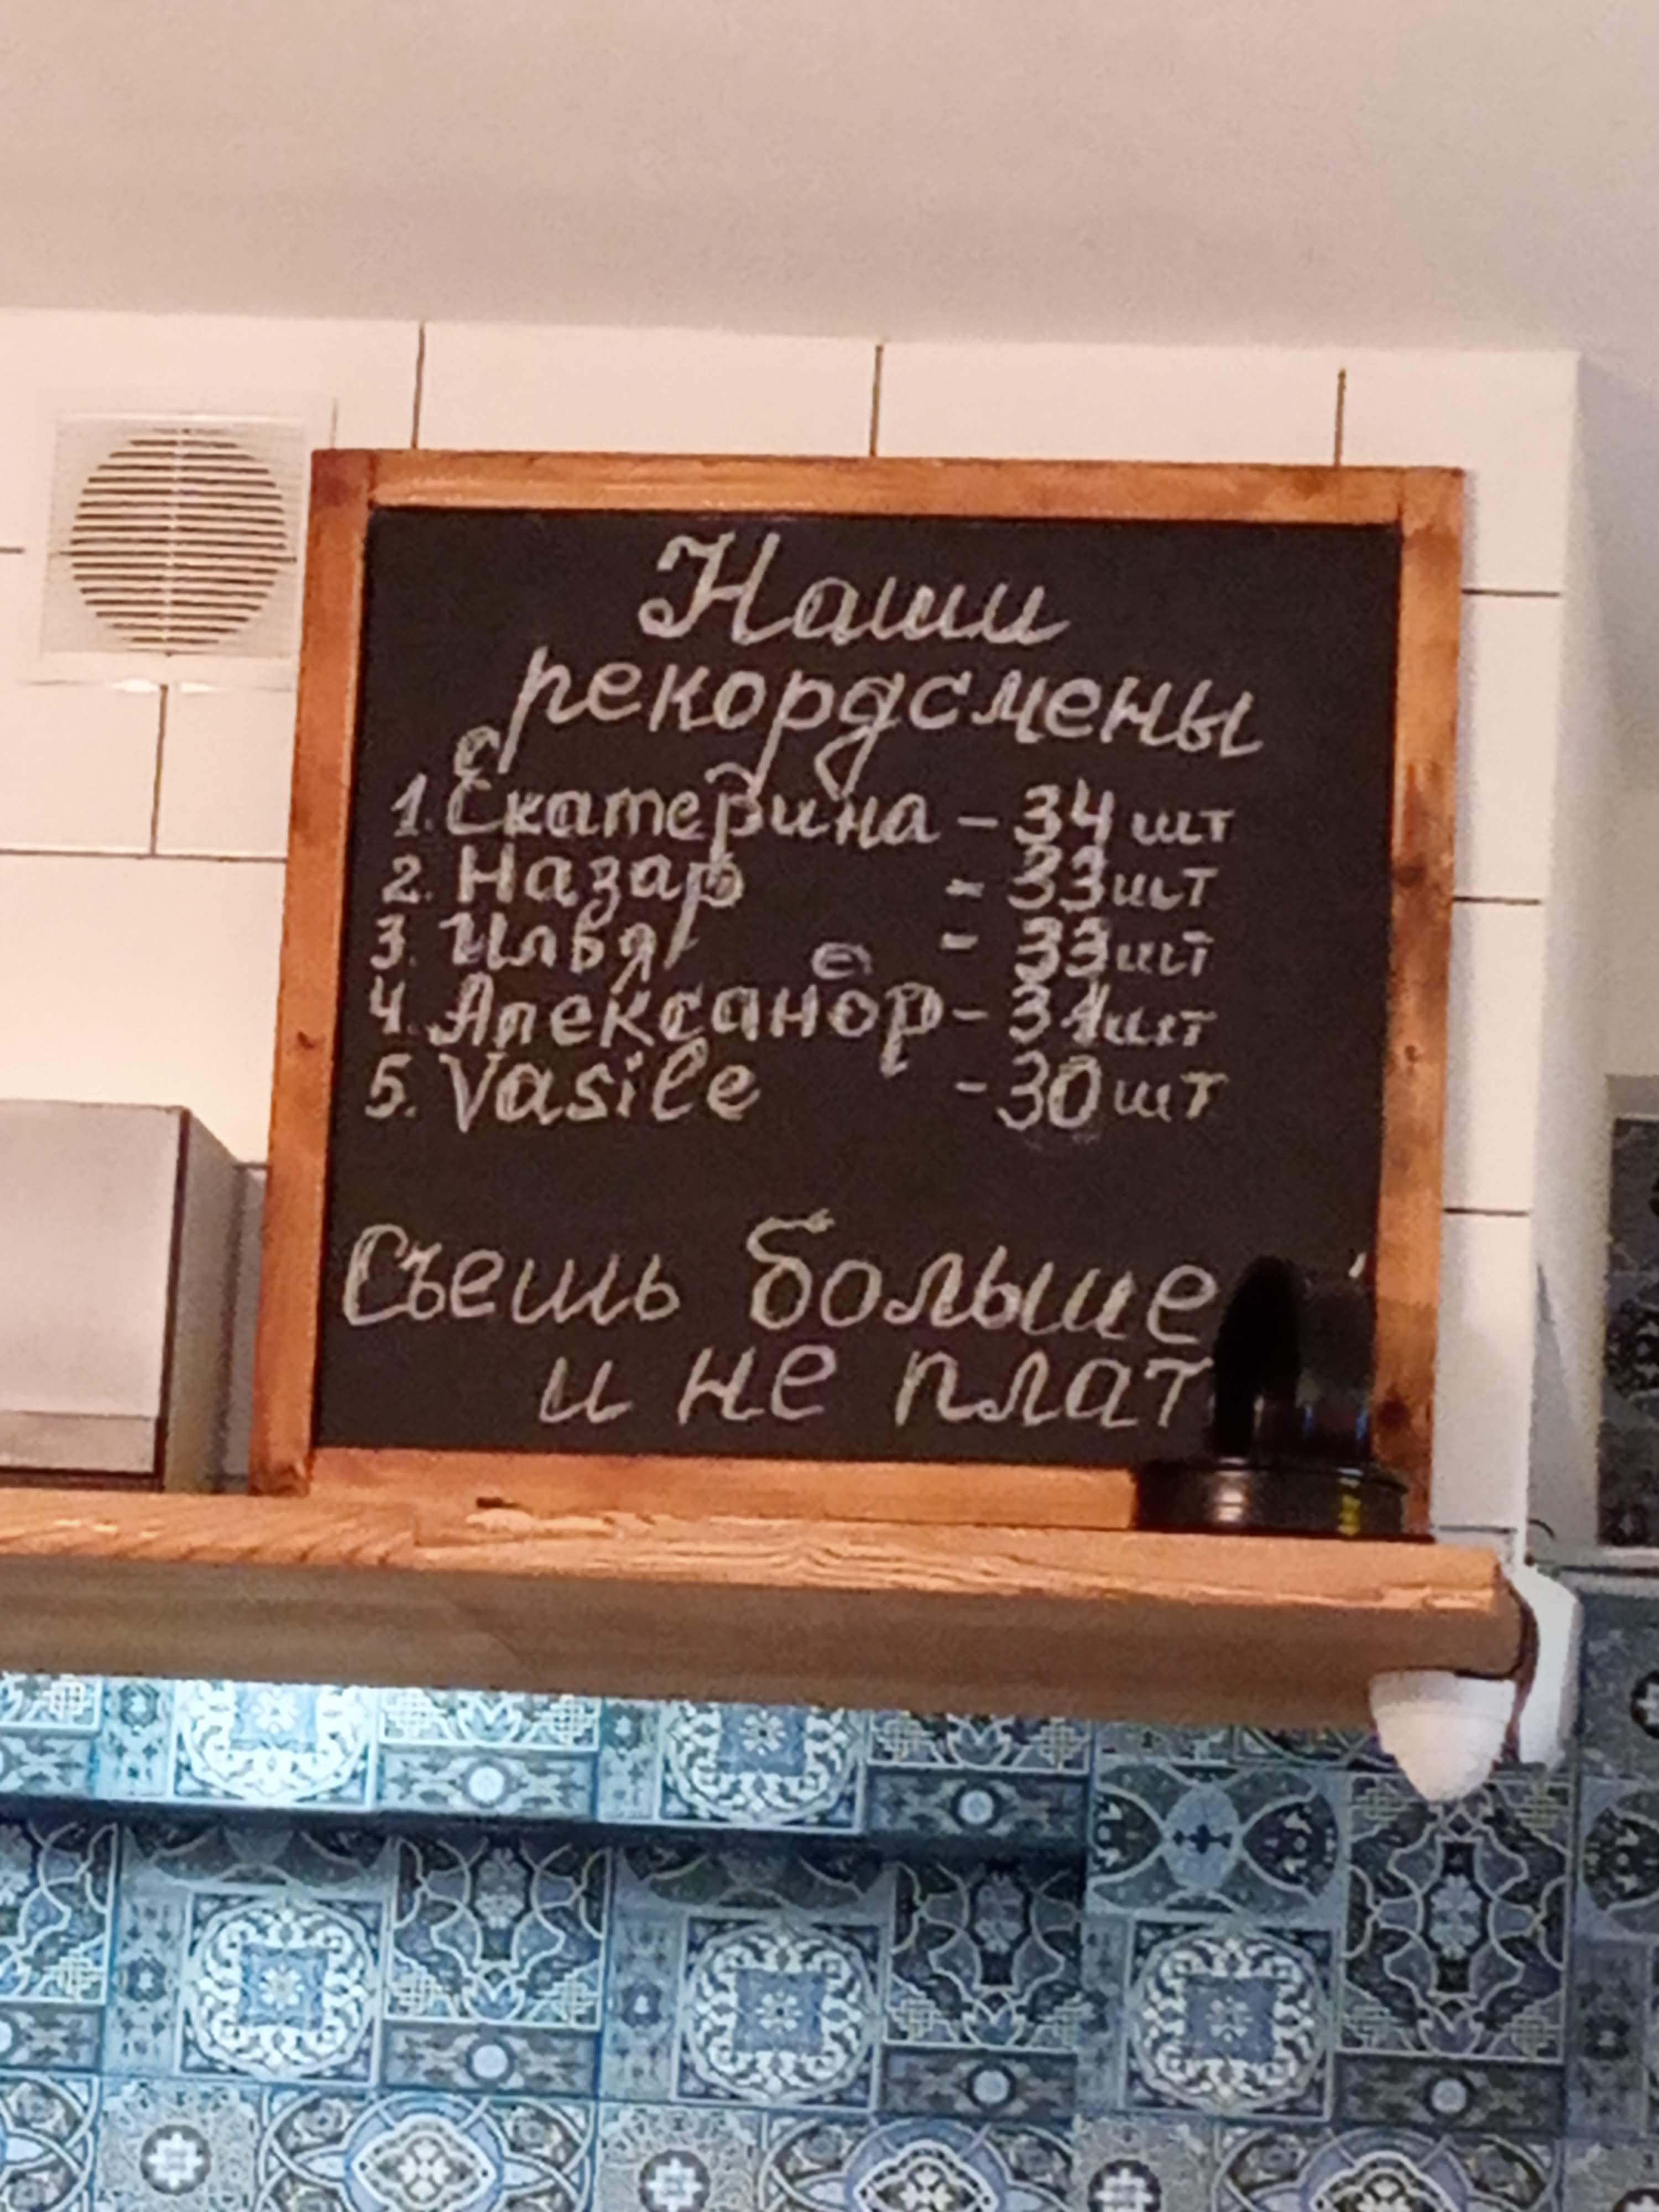 Наши
рекордсмены
1. Екатерина - 34 шт
2. Назар - 33 шт
3. Илья - 33 шт
4. Александр - 31 шт
5. Vasile - 30 шт
Съешь больше
и не плат